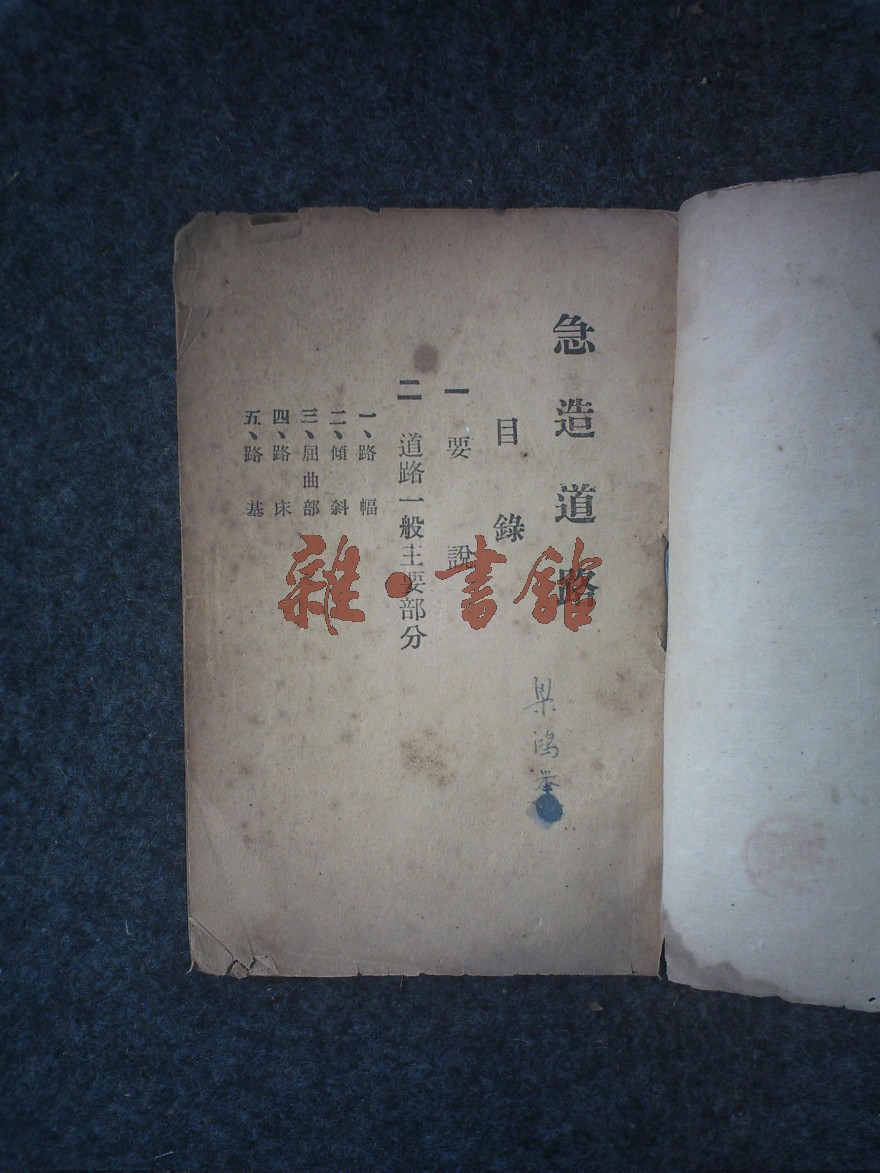 急造道路
目錄
一 要說
二 道路一般主要部分
一、路幅
二、傾斜
三、屈曲部
四、路床
五、路基
梁鴻举
雜·書館